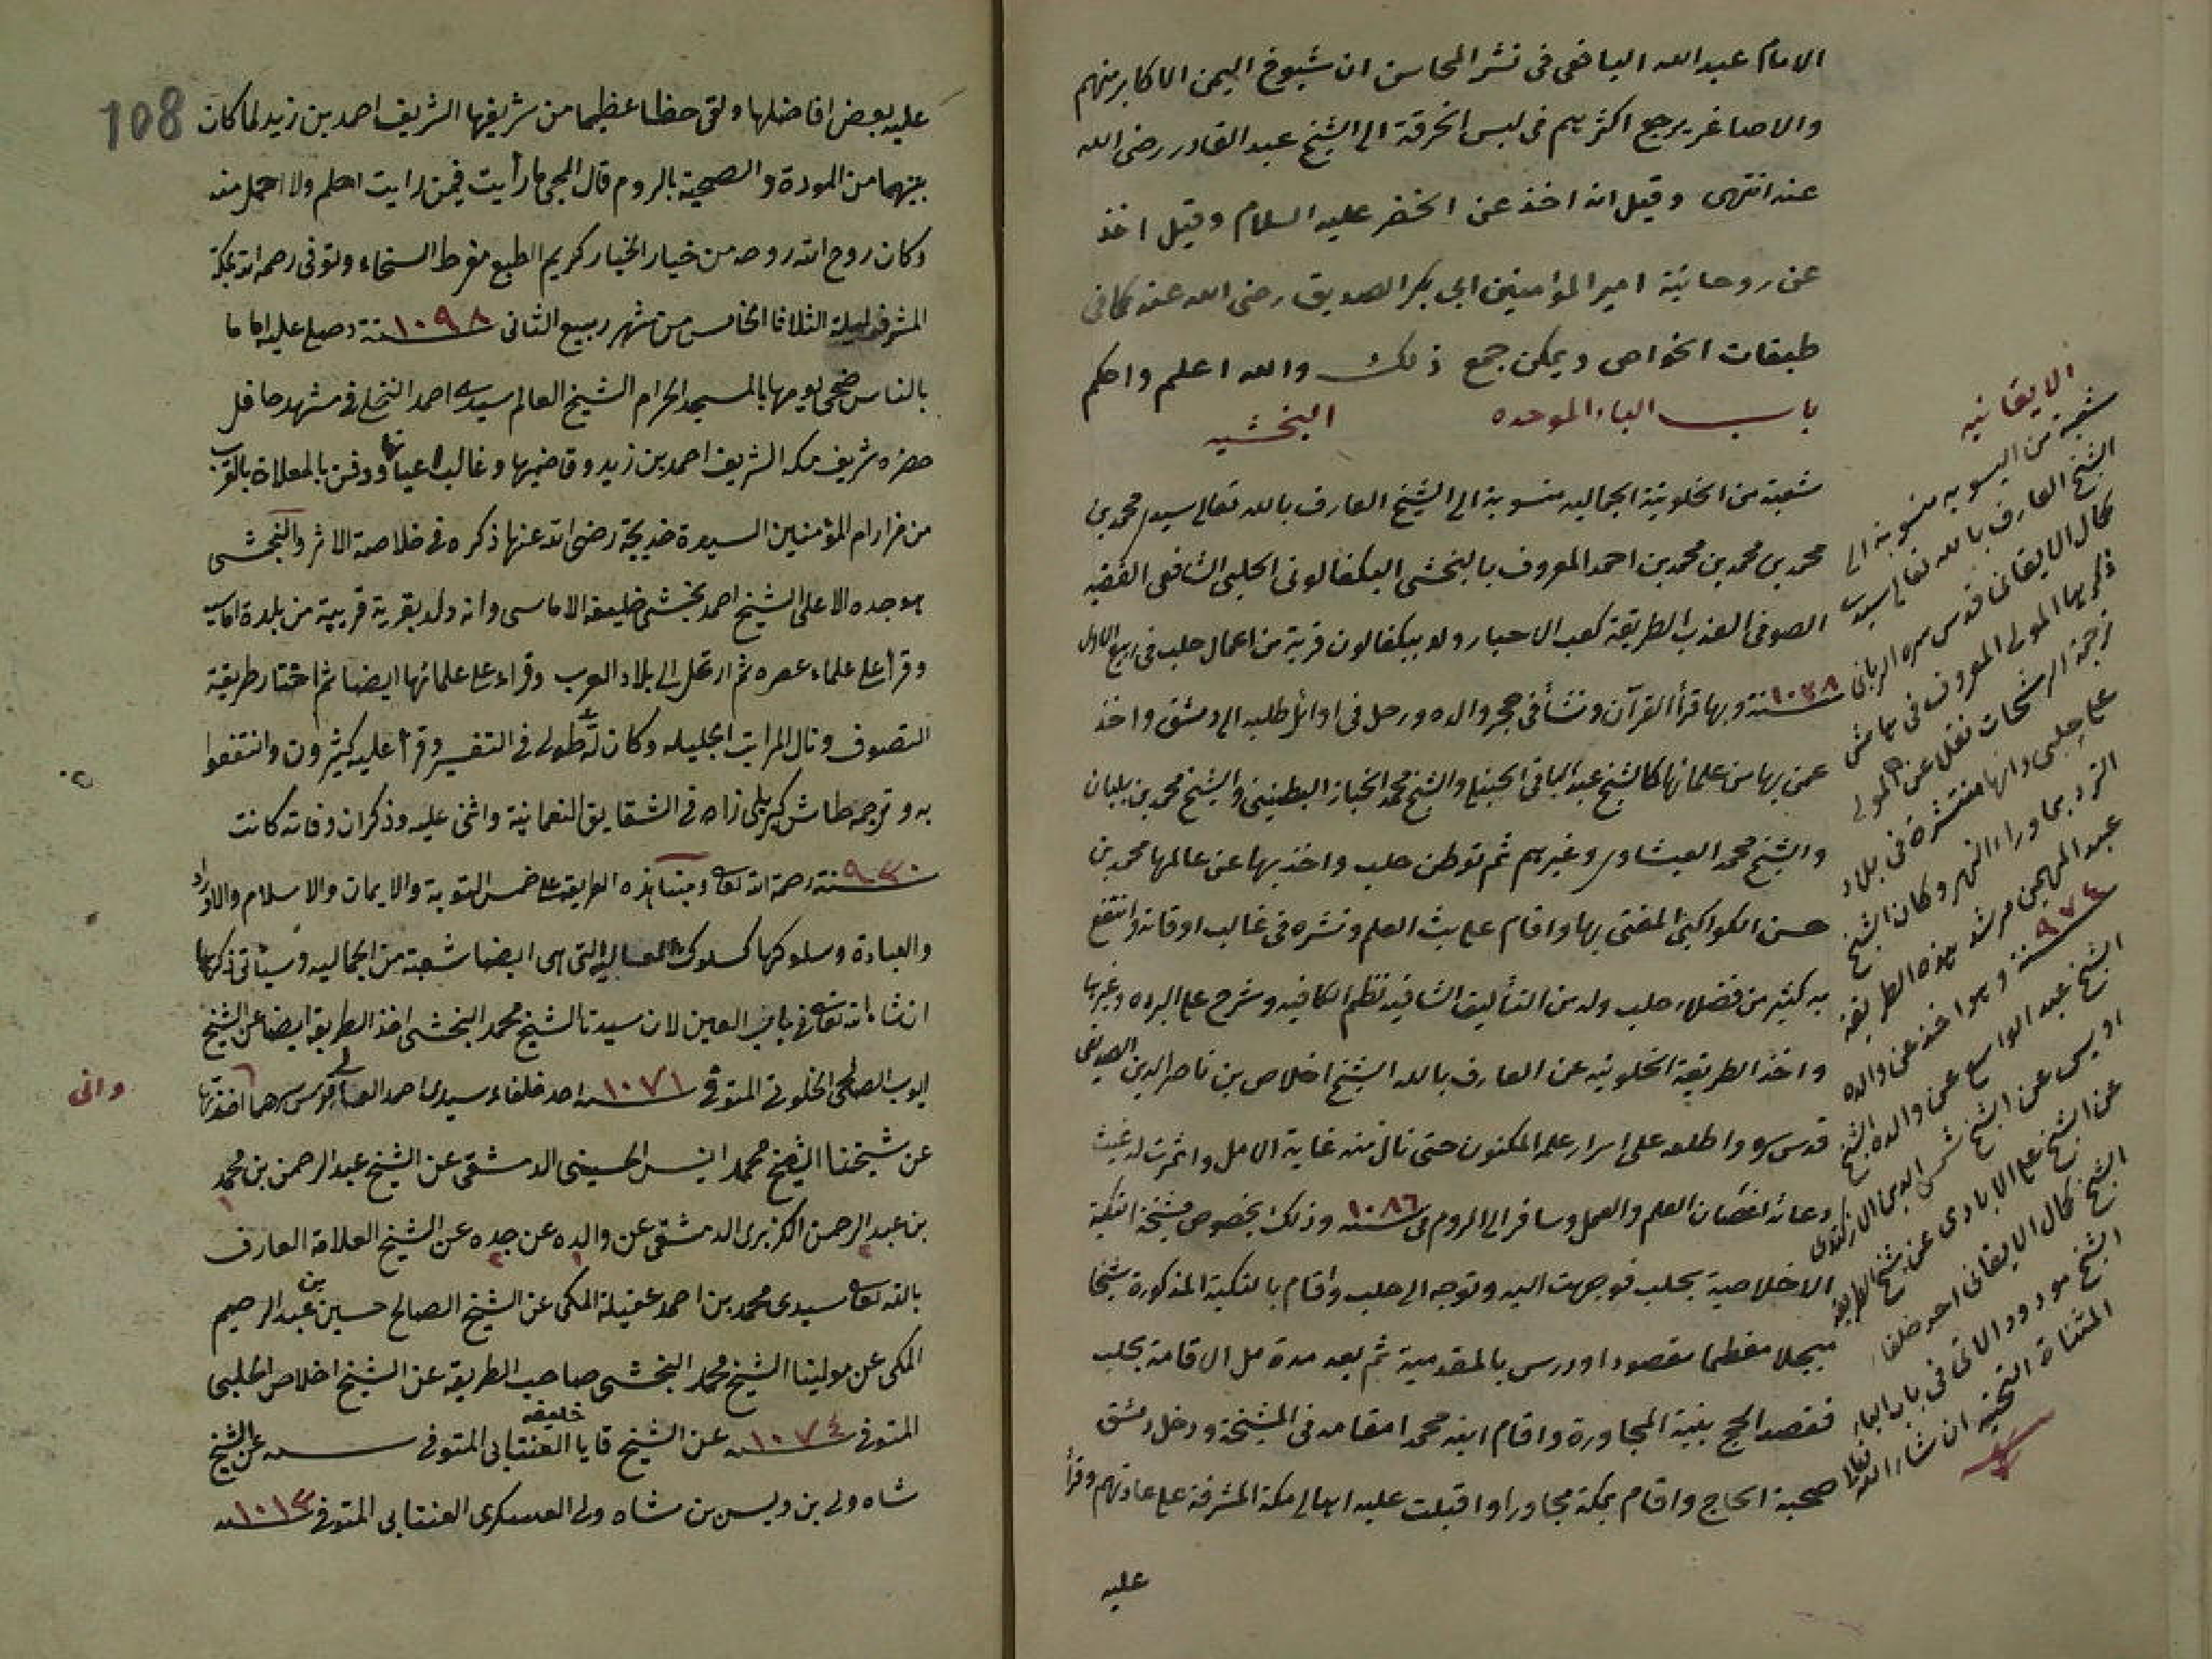 الامام عبدالله اليافعى فى نشر المحاسن ان شيوخ اليمن الاكابر منهم
والاصاغر يرجع اكثرهم فى لبس الخرقة الى الشيخ عبد القادر رضى الله
عنه انتهى وقيل انه اخذ عن الخضر عليه السلام وقيل اخذ
عن روحانية امير المؤمنين ابى بكر الصديق رضى الله عنه كما فى
طبقات الخواص ويمكن جمع ذلك والله اعلم واحكم
باب الباء الموحده البخشيه
شعبة من الخلوتية الجماليه منسوبة الى الشيخ العارف بالله تعالى سيدى محمد بن
محمد بن محمد بن محمد بن احمد المعروف بالبخشى البكفالونى الحلبى الشافعى الفقيه
الصوفى العذب الطريقة كعب الاحبار ولد ببكفالون قرية من اعمال حلب فى ربيع الاول
سنة ١٠٣٨ وبها قرأ القرآن ونشأ فى حجر والده ورحل فى اوائل طلبه الى دمشق واخذ
عمن بها من علمائها كالشيخ عبد الباقى الحنبلى والشيخ محمد الخباز البطنينى والشيخ محمد بن بلبان
والشيخ محمد العيثاوى وغيرهم ثم توطن حلب واخذ بها عن عالمها محمد بن
حسن الكواكبى المفتى بها واقام على بث العلم ونشره فى غالب اوقاته وانتفع
به كثير من فضلاء حلب وله من التأليف الشافيه نظم الكافيه وشرح على البرده وغيرها
واخذ الطريقة الخلوتية عن العارف بالله الشيخ اخلاص بن ناصر الدين الصديقى
قدس سره واطلعه على اسرار علمه المكنون حتى نال منه غاية الامل واثمرت له غيث
دعائه اغصان العلم والعمل وسافر الى الروم فى سنة ١٠٨٦ وذلك بخصوص مشيخة التكية
الاخلاصية بحلب فوجهت اليه وتوجه الى حلب واقام بالتكية المذكورة شيخا
مبجلا معظما مقصودا ودرس بالمقدمية ثم بعد مدة مل الاقامة بحلب
فقصد الحج بنية المجاورة واقام ابنه محمدا مقامه فى المشيخة ودخل دمشق
صحبة الحاج واقام بمكة مجاورا واقبلت عليه اهالى مكة المشرفة على عادتهم وقرأ
عليه
الايقانيه
شعبة من اليسويه منسوبة الى
الشيخ العارف بالله تعالى سيدى
كمال الايقانى قدس سره الربانى
ذكرها المولى المعروف فى هامش
ترجمة الرشحات نقل عن المولى
على چلبى وانها منتشرة فى بلاد
الترك بما وراء النهر وكان الشيخ
عبد المهيمن مرشد هذه الطريقة
سنة ٩٧٤ وهو اخذ عن والده
الشيخ عبد الواسع عن والده الشيخ
اويس عن الشيخ شمس الدين الازكندى
عن الشيخ على الابادى عن شيخ الطريقة
الشيخ كمال الايقانى احد خلفاء
الشيخ مودود الاتى فى باب الياء
المثناة التحتية ان شاء الله تعالى
108
عليه بعض افاضلها ولقى حظا عظيما من شريفها الشريف احمد بن زيد لما كان
بينهما من المودة والصحبة بالروم قال المحبى ما رأيت فيمن رايت احلم ولا احمل منه
وكان روح الله روحه من خيار الخيار كريم الطبع مفرط السخاء وتوفى رحمه الله بمكة
المشرفة ليلة الثلاثا الخامس من شهر ربيع الثانى سنة ١٠٩٨ وصلى عليه اماما
بالناس ضحى يومها بالمسجد الحرام الشيخ العالم سيدى احمد النخلى فى مشهد حافل
حضره شريف مكه الشريف احمد بن زيد وقاضيها وغالب اعيانها ودفن بالمعلاة بالقرب
من مزار ام المؤمنين السيدة خديجة رضى الله عنها ذكره فى خلاصة الاثر والبخشى
هو جده الاعلى الشيخ احمد بخشى خليفه الاماسى وانه ولد بقرية قريبة من بلدة اماسيه
وقرأ على علماء عصره ثم ارتحل الى بلاد العرب وقراء على علمائها ايضا ثم اختار طريقة
التصوف ونال المراتب الجليله وكان له يد طولى فى التفسير وقرأ عليه كثيرون وانتفعوا
به وترجمه طاش كبرى زاده فى الشقايق النعمانية واثنى عليه وذكر ان وفاته كانت
سنة ٩٣٠ رحمه الله تعالى ومبنا هذه الطريقة على خمس التوبة والايمان والاسلام والاوراد
والعبادة وسلوكها كسلوك العسالية التى هى ايضا شعبة من الجماليه وسيأتى ذكرها
ان شاء الله تعالى فى باب العين لان سيدنا الشيخ محمد البخشى اخذ الطريقة ايضا عن الشيخ
ايوب الصالحى الخلوتى المتوفى سنة ١٠٧١ احد خلفاء سيدى احمد العسالى قدس سرهما اخذتها
وانى
عن شيخنا الشيخ محمد انيس الحسينى الدمشقى عن الشيخ عبد الرحمن بن محمد
بن عبد الرحمن الكزبرى الدمشقى عن والده عن جده عن الشيخ العلامة العارف
بالله تعالى سيدى محمد بن احمد عقيلة المكى عن الشيخ الصالح حسين بن عبد الرحيم
المكى عن مولينا الشيخ محمد البخشى صاحب الطريقة عن الشيخ اخلاص الحلبى
المتوفى سنة ١٠٧٤ عن الشيخ قايا خليفه العنتابى المتوفى سنة عن الشيخ
شاه ولى بن ويس بن شاه ولى العسكرى العنتابى المتوفى سنة ١٠١٣